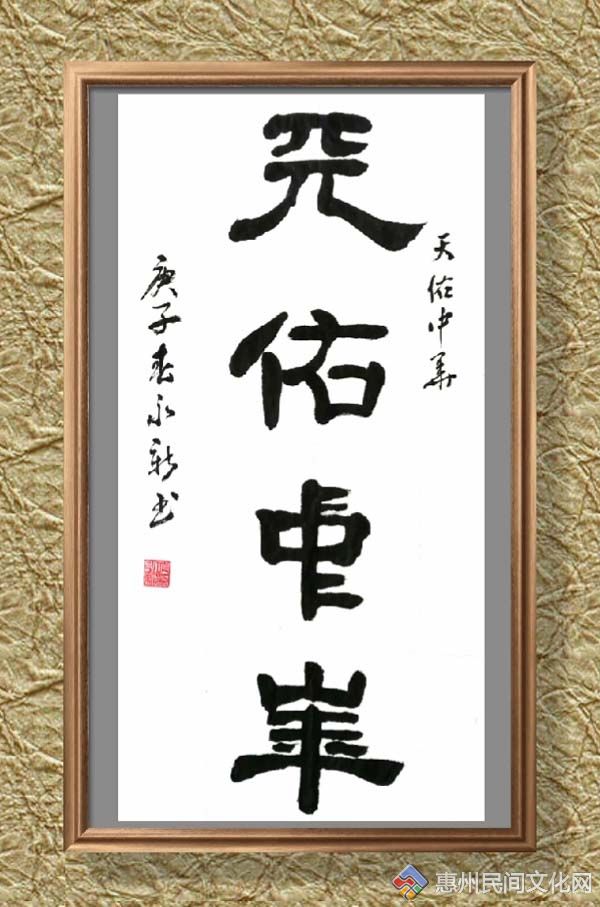 天佑中華
天佑中華
庚子春永新书
惠州民间文化网